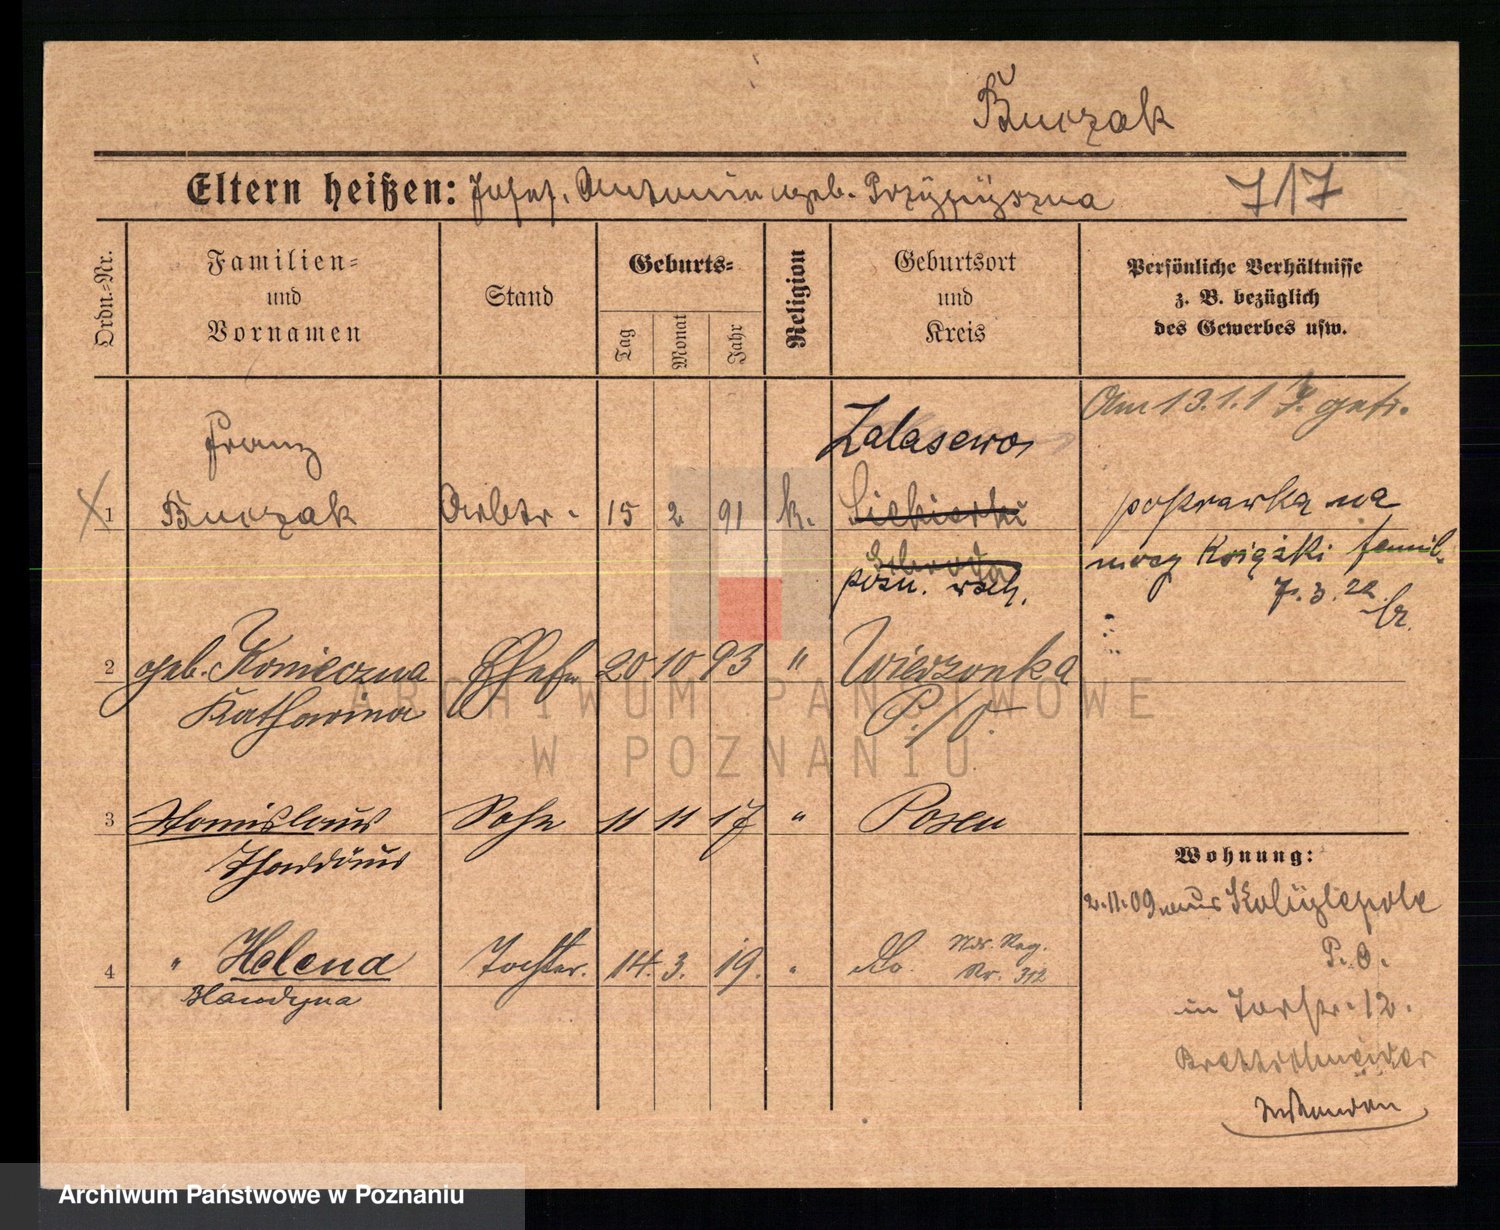 Buczak
Eltern heißen: Josef, Antonina geb. Przypyszna 717
Ordn.=Nr.
Familien=
und
Vornamen
Stand
Geburts=
Tag
Monat
Jahr
Religion
Geburtsort
und
Kreis
Persönliche Verhältnisse
z. B. bezüglich
des Gewerbes usw.
Am 13.1.17. getr.
Franz
Zalasewo
1 Buczak Arbtr. 15 2 91 k. Siekierki
Schroda
posn. wsch.
poprawka na
mocy Książki famil.
7.3.22
2 geb. Konieczna Ehefr. 20 10 93 " Wierzonka
Katharina P./O.
3 Stanislaus Sohn 11 11 17 " Posen
Thaddäus
Wohnung:
2.11.09 aus Kobylepole
P. O.
4 " Helena Tochter. 14. 3. 19. " do. Nr. 312
Blandyna
in Torstr. 12.
Bretschneider
ARCHIWUM PAŃSTWOWE
W POZNANIU
Archiwum Państwowe w Poznaniu